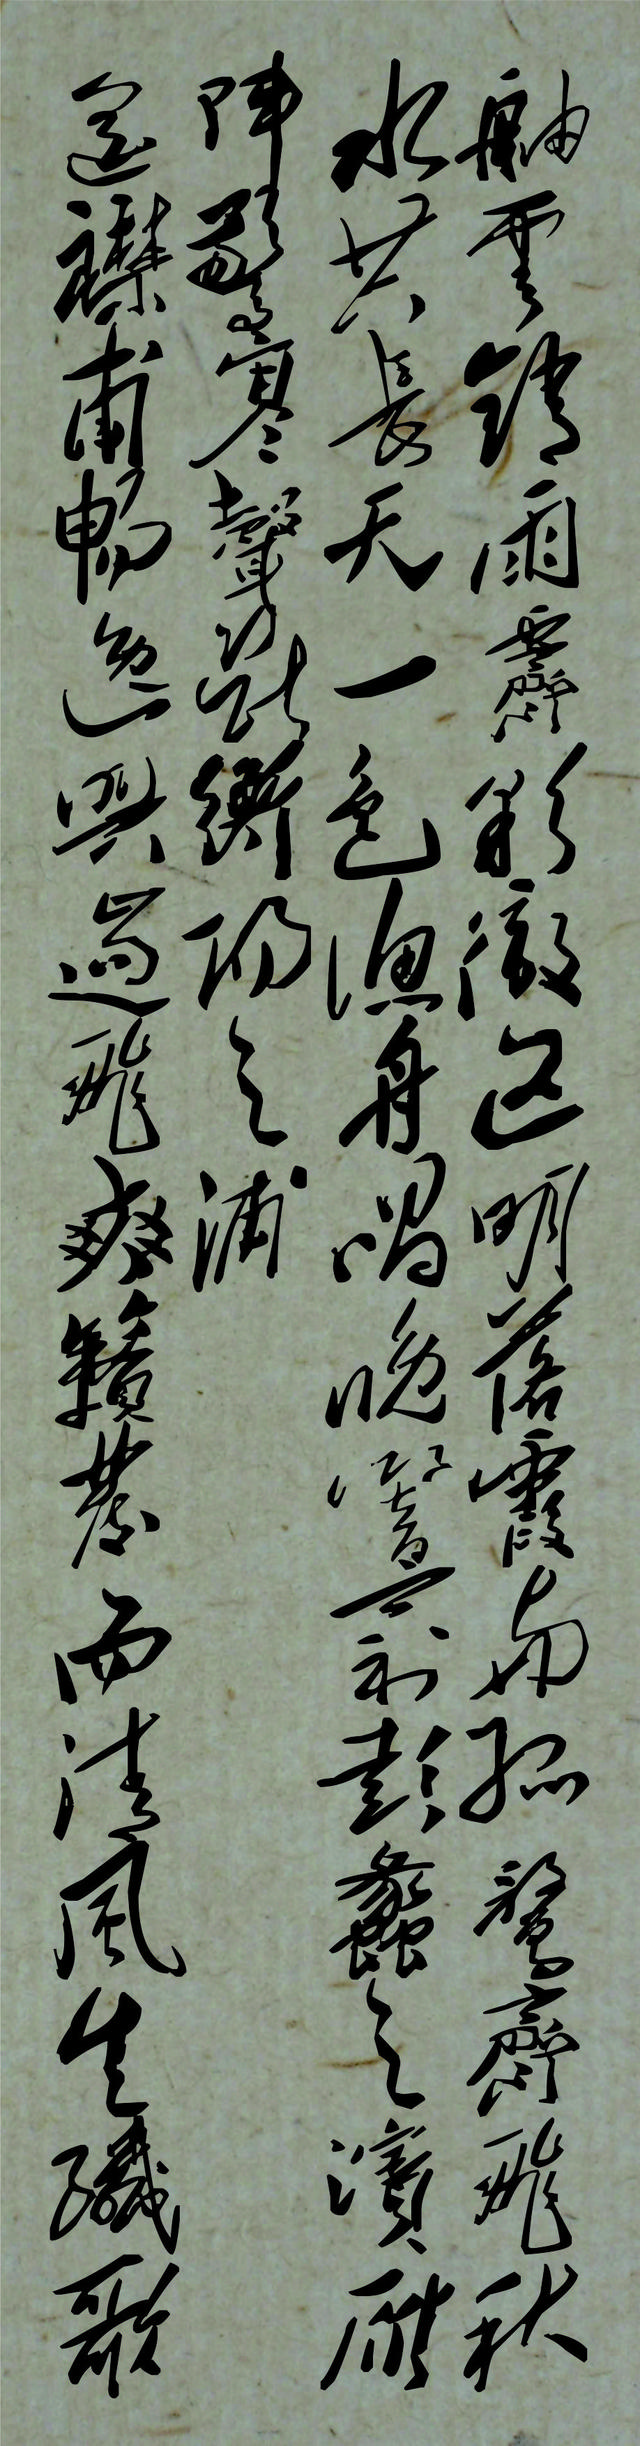 舳雲銷雨霽彩徹區明落霞與孤鶩齊飛秋
水共長天一色漁舟唱晚響窮彭蠡之濱雁
陣驚寒聲斷衡陽之浦
遙襟甫暢逸興遄飛爽籟發而清風生纖歌